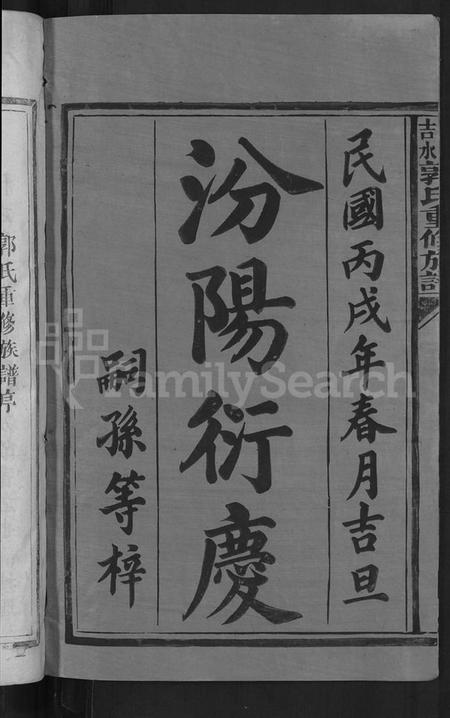 吉水郭氏重修族譜
民國丙戌年春月吉旦
汾陽衍慶
嗣孫等梓
郭氏重修族譜序
FamilySearch